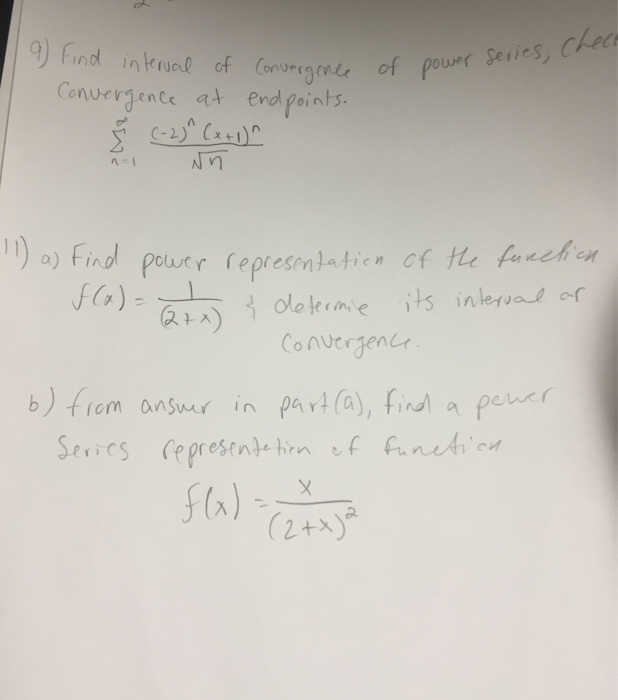 9) Find interval of convergence of power series, Chec
Convergence at endpoints.
∞
Σ (-2)ⁿ (x+1)ⁿ / √n
n=1
11) a) Find power representation of the function
f(x) = 1/(2+x) & determine its interval of
Convergence.
b) from answer in part (a), find a power
Series representation of function
f(x) = x/(2+x)²